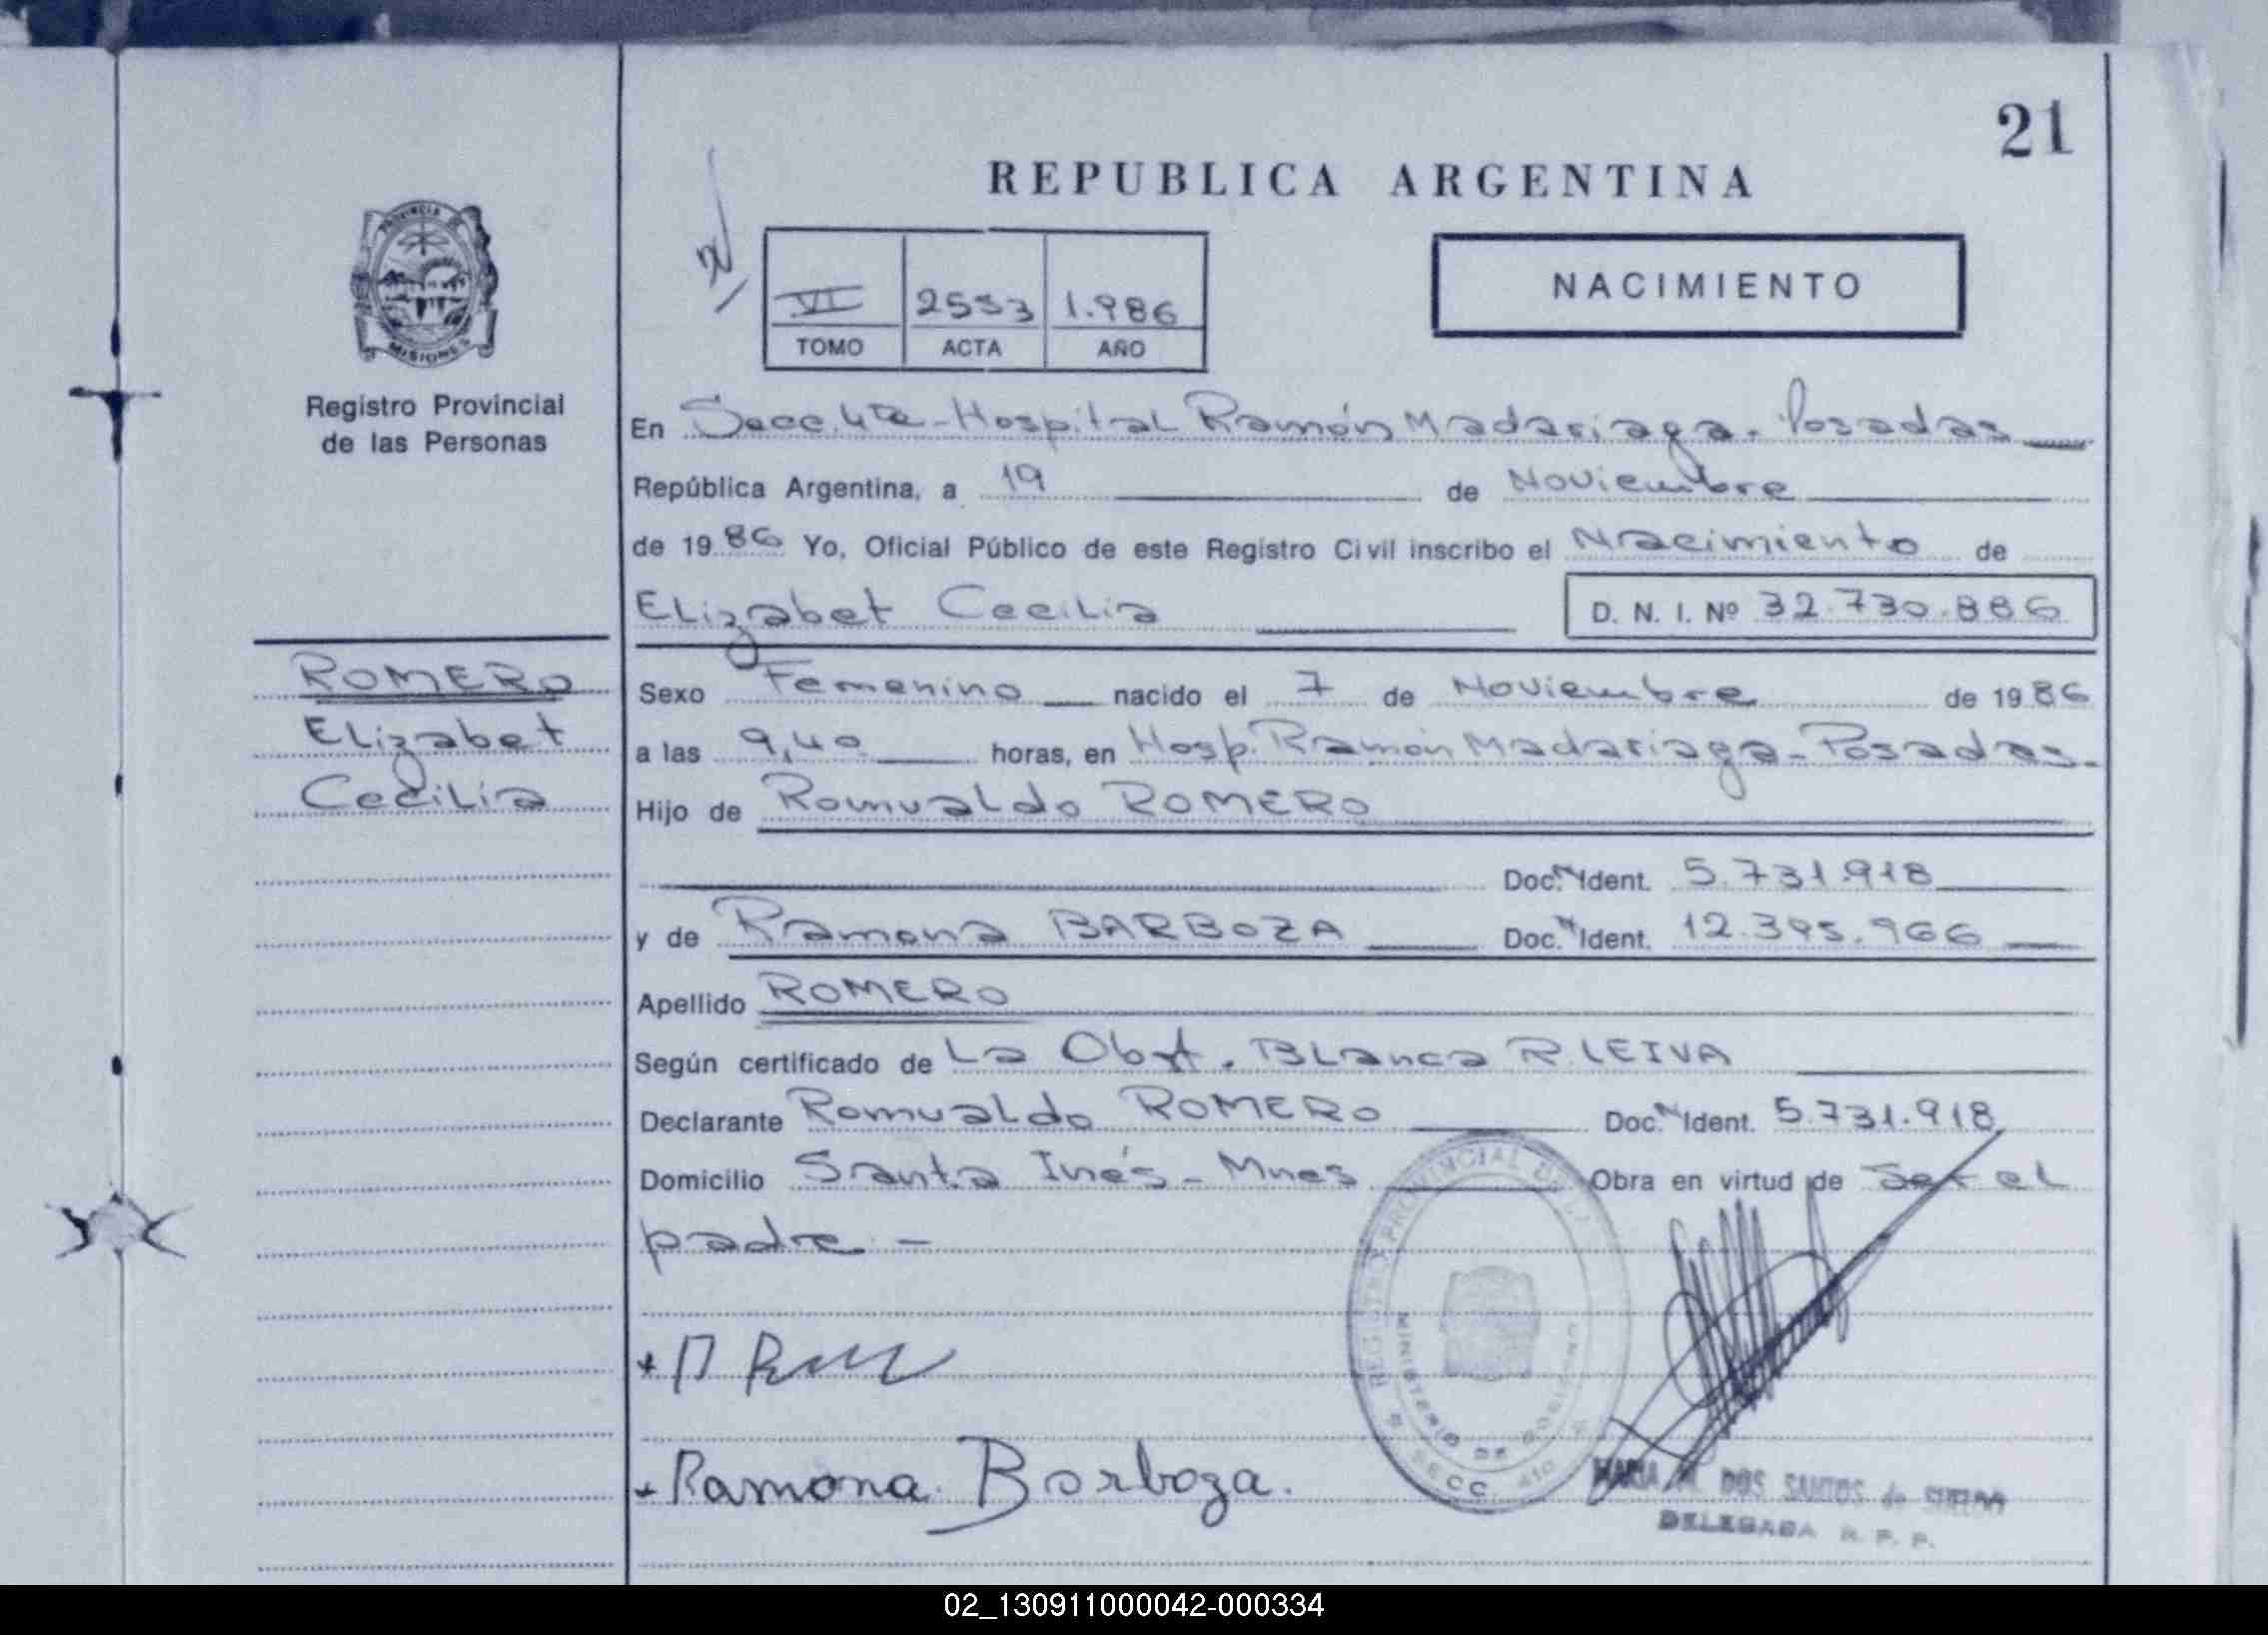 21
REPUBLICA ARGENTINA
PROVINCIA DE
MISIONES
VI 2553 1.986
TOMO ACTA AÑO
NACIMIENTO
Registro Provincial
de las Personas
En Secc. 4ta - Hospital Ramón Madariaga. Posadas
República Argentina, a 19 de Noviembre
de 1986 Yo, Oficial Público de este Registro Civil inscribo el Nacimiento de
Elizabet Cecilia D. N. I. Nº 32.730.886
ROMERO
Elizabet
Cecilia
Sexo Femenino nacido el 7 de Noviembre de 1986
a las 9,40 horas, en Hosp. Ramón Madariaga - Posadas.
Hijo de Romualdo ROMERO
Doc. N Ident. 5.731.918
y de Ramona BARBOZA Doc. N Ident. 12.395.966
Apellido ROMERO
Según certificado de La Obst. Blanca R. LEIVA
Declarante Romualdo ROMERO Doc. N Ident. 5.731.918
Domicilio Santa Inés - Mnes Obra en virtud de Ser el
padre. -
Ramona Borboza.
REGISTRO PROVINCIAL DE L
MINISTERIO DE GOBIERNO
SECC. 4TO
MARIA M. DOS SANTOS de
DELEGADA R. P. P.
02_130911000042-000334